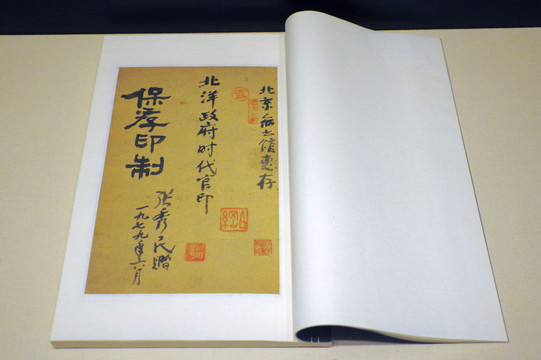 北京馆惠存
北洋政府时代官印
保孝印制
张秀民赠
一九七九年六月